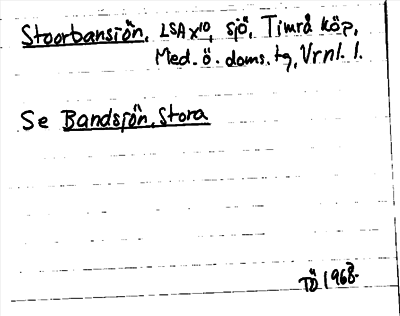 Stoorbansjön, LSA x10, sjö, Timrå köp,
Med. ö. doms. tg, Vrnl. l.
Se Bandsjön, Stora
TÖ 1968.